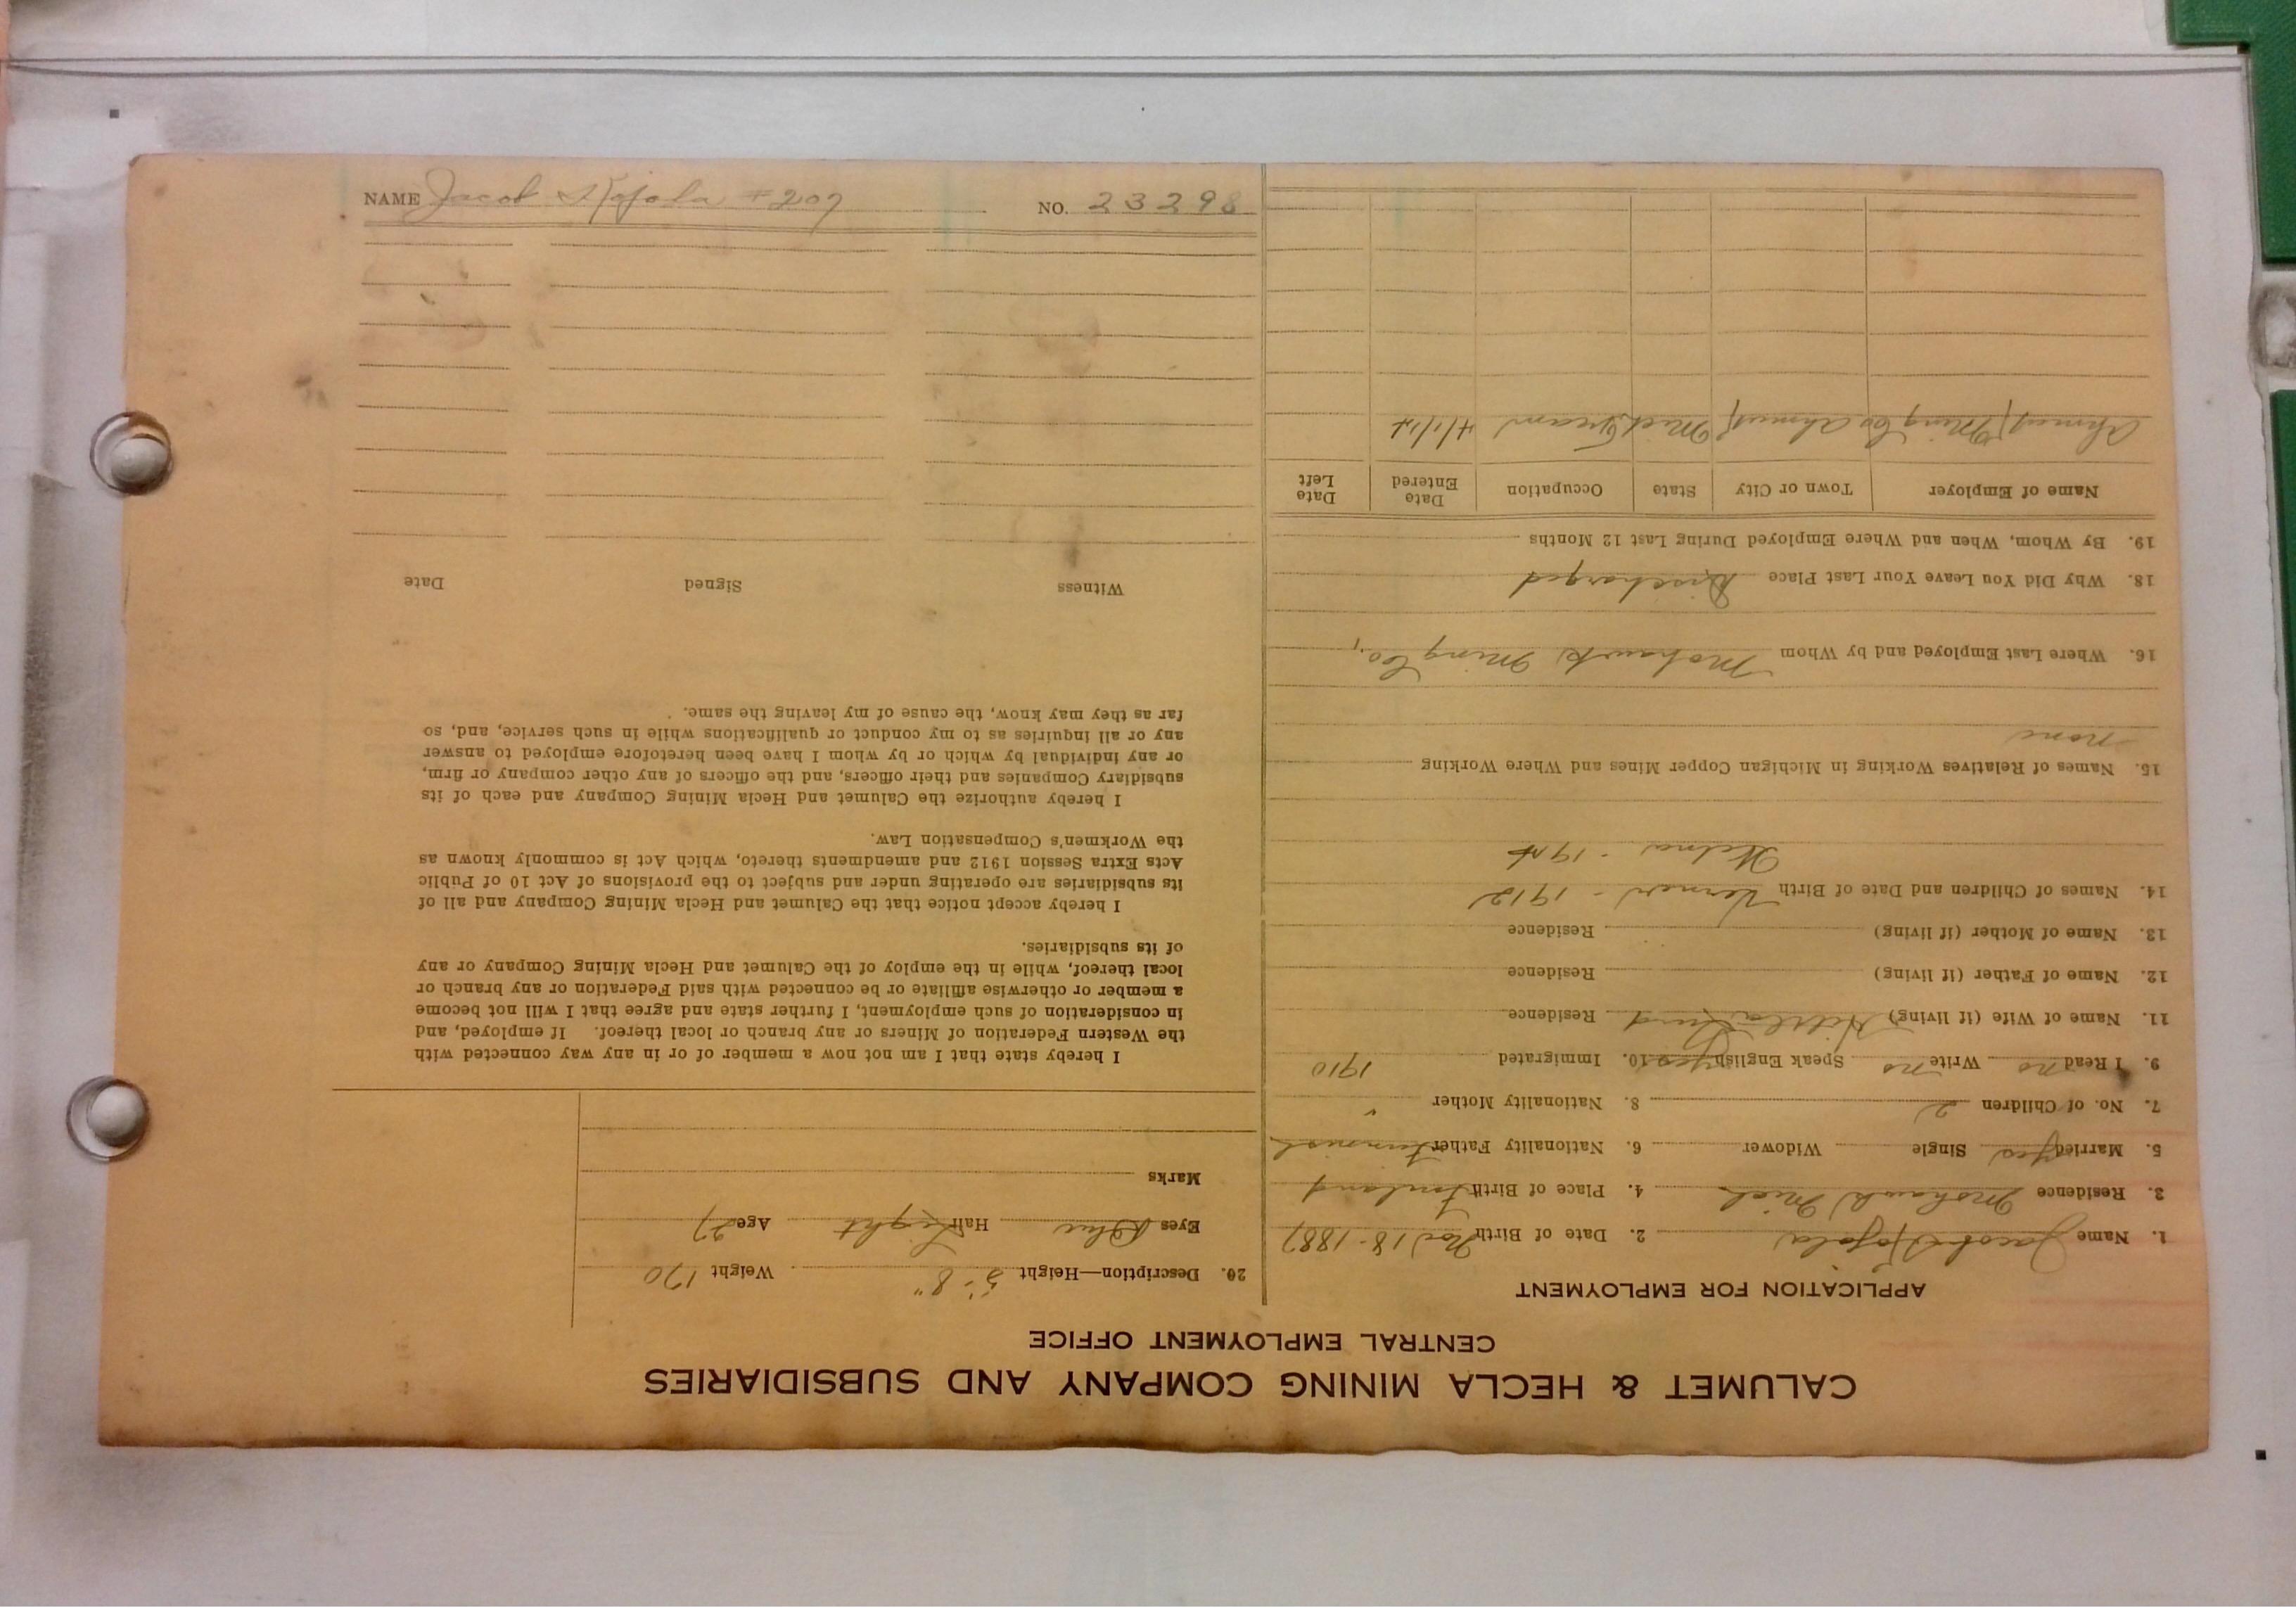 CALUMET & HECLA MINING COMPANY AND SUBSIDIARIES
CENTRAL EMPLOYMENT OFFICE
APPLICATION FOR EMPLOYMENT
1. Name Jacob Kojola 2. Date of Birth Nov 18-1887
3. Residence Mohawk Mich 4. Place of Birth Finland
5. Married yes Single Widower 6. Nationality Father Finnish
7. No. of Children 2 8. Nationality Mother "
9. I Read no Write no Speak English yes 10. Immigrated 1910
11. Name of Wife (if living) Residence
12. Name of Father (if living) Residence
13. Name of Mother (if living) Residence
14. Names of Children and Date of Birth - 1912
- 1914
15. Names of Relatives Working in Michigan Copper Mines and Where Working
none
16. Where Last Employed and by Whom Mohawk Ming Co,
18. Why Did You Leave Your Last Place Discharged
19. By Whom, When and Where Employed During Last 12 Months
Name of Employer Town or City State Occupation Date Entered Date Left
Ahmeek Ming Co Ahmeek Mich
20. Description—Height 5'-8" Weight 170
Eyes Blue Hair Light Age 27
Marks
I hereby state that I am not now a member of or in any way connected with
the Western Federation of Miners or any branch or local thereof. If employed, and
in consideration of such employment, I further state and agree that I will not become
a member or otherwise affiliate or be connected with said Federation or any branch or
local thereof, while in the employ of the Calumet and Hecla Mining Company or any
of its subsidiaries.
I hereby accept notice that the Calumet and Hecla Mining Company and all of
its subsidiaries are operating under and subject to the provisions of Act 10 of Public
Acts Extra Session 1912 and amendments thereto, which Act is commonly known as
the Workmen's Compensation Law.
I hereby authorize the Calumet and Hecla Mining Company and each of its
subsidiary Companies and their officers, and the officers of any other company or firm,
or any individual by which or by whom I have been heretofore employed to answer
any or all inquiries as to my conduct or qualifications while in such service, and, so
far as they may know, the cause of my leaving the same.
Witness Signed Date
NAME Jacob Kojola #207 NO. 23298